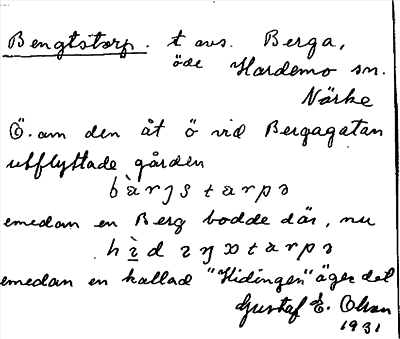 Bengtstorp. t avs. Berga,
öde Hardemo sn.
Närke
Ö. om den åt ö vid Bergagatan
utflyttade gården
bàrjstarpə
emedan en Berg bodde där, nu
hìdıŋstarpə
emedan en kallad "Hidingen" äger det
Gustaf E. Olson
1931